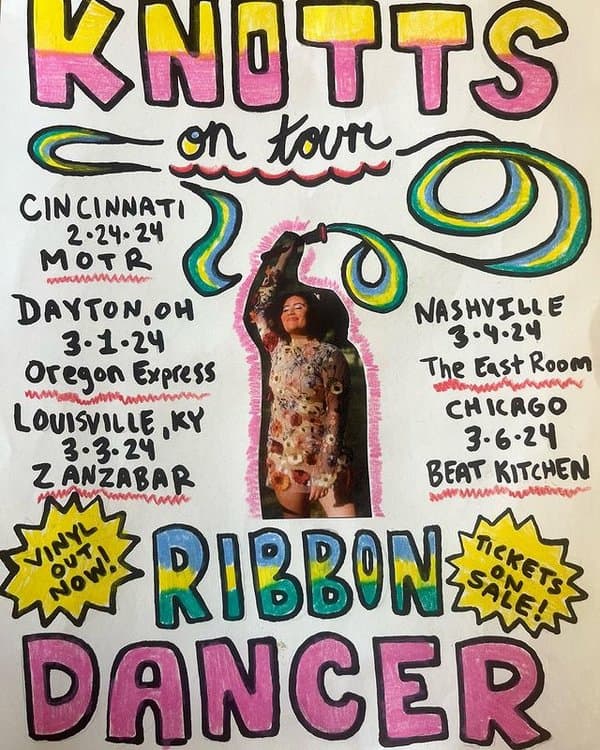 KNOTTS
on tour
CINCINNATI
2.24.24
MOTR
DAYTON, OH
3.1.24
Oregon Express
LOUISVILLE, KY
3.3.24
ZANZABAR
NASHVILLE
3.4.24
The East Room
CHICAGO
3.6.24
BEAT KITCHEN
VINYL
OUT
NOW!
RIBBON
TICKETS
ON
SALE!
DANCER